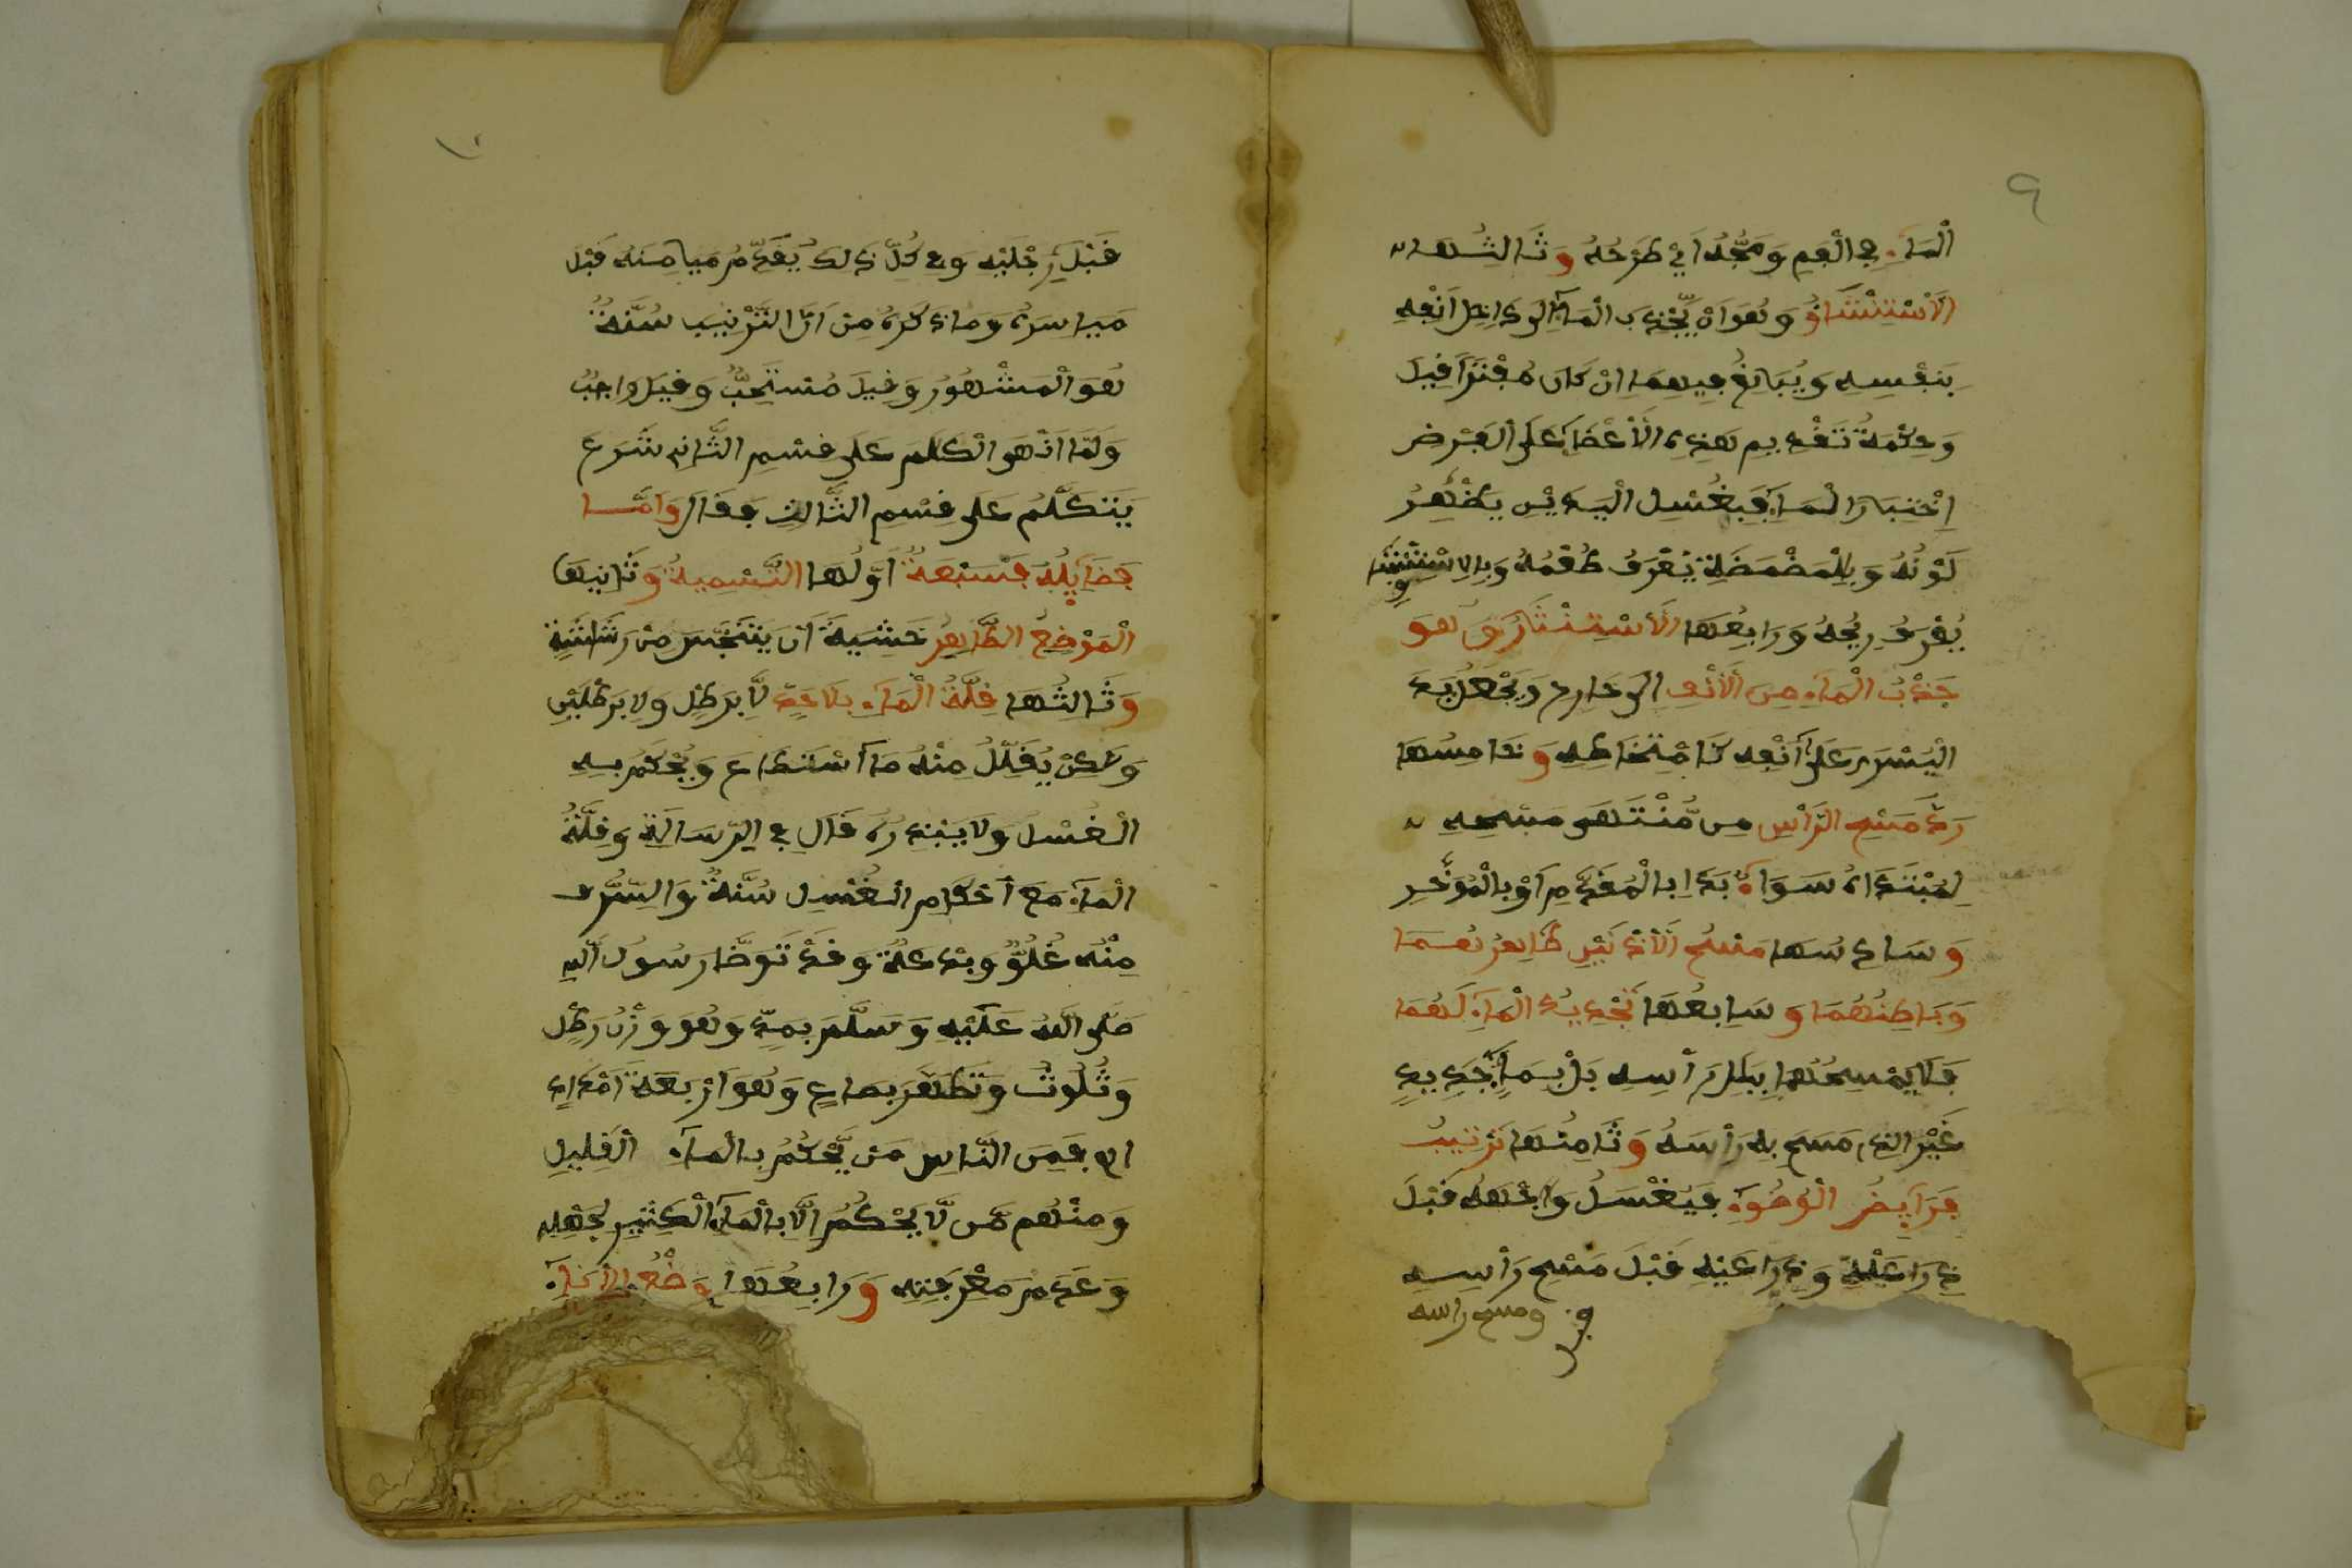 ٩
الْمَاءِ فِي الْفَمِ وَمَجُّهُ اَيْ طَرْحُهُ وَثَالِثُهَا
الْاسْتِنْشَاقُ وَهُوَ اَنْ يَّجْذِبَ الْمَاءَ اِلَى دَاخِلِ اَنْفِهِ
بِنَفْسِهِ وَيُبَالِغُ فِيهِمَا اِنْ كَانَ مُفْطِرًا قِيلَ
وَحِكْمَةُ تَقْدِيمِ هَذِهِ الْأَعْضَاءِ عَلَى الْفَرْضِ
اِخْتِبَارُ الْمَاءِ فَبِغُسْلِ الْيَدَيْنِ يَظْهَرُ
لَوْنُهُ وَبِالْمَضْمَضَةِ يُعْرَفُ طَعْمُهُ وَبِالِاسْتِنْشَاقِ
يُعْرَفُ رِيحُهُ وَرَابِعُهَا الْاسْتِنْثَارُ وَهُوَ
جَذْبُ الْمَاءِ مِنَ الْأَنْفِ اِلَى خَارِجٍ وَيَجْعَلُ يَدَهُ
الْيُسْرَى عَلَى اَنْفِهِ كَامْتِخَاطِهِ وَخَامِسُهَا
رَدُّ مَسْحِ الرَّأْسِ مِن مُّنْتَهَى مَسْحِهِ
لِمُبْتَدَاهُ سَوَاءٌ بَدَا بِالْمُقَدَّمِ اَوْ بِالْمُؤَخَّرِ
وَسَادِسُهَا مَسْحُ الْأُذُنَيْنِ ظَاهِرُهُمَا
وَبَاطِنُهُمَا وَسَابِعُهَا تَجْدِيدُ الْمَاءِ لَهُمَا
فَلَا يَمْسَحُهُمَا بِبَلَلِ رَأْسِهِ بَلْ بِمَاءٍ جَدِيدٍ
غَيْرِ الذِي مَسَحَ بِهِ رَأْسَهُ وَثَامِنُهَا تَرْتِيبُ
فَرَايِضِ الْوُضُوءِ فَيَغْسِلُ وَجْهَهُ قَبْلَ
ذِرَاعَيْهِ وَذِرَاعَيْهِ قَبْلَ مَسْحِ رَأْسِهِ
ومسح راسه
١٠
قَبْلَ رِجْلَيْهِ وَفِي كُلِّ ذَلِكَ يُقَدِّمُ مَيَامِنَهُ قَبْلَ
مَيَاسِرِهِ وَمَا ذَكَرَهُ مِنْ اَنَّ التَّرْتِيبَ سُنَّةٌ
هُوَ الْمَشْهُورُ وَقِيلَ مُسْتَحَبٌّ وَقِيلَ وَاجِبٌ
وَلَمَّا اَنْهَى الْكَلَامَ عَلَى قِسْمِ الثَّانِي شَرَعَ
يَتَكَلَّمُ عَلَى قِسْمِ الثَّالِثِ فَقَالَ وَأَمَّا
فَضَايِلُهُ فَسَبْعَةٌ اَوَّلُهَا التَّسْمِيَةُ وَثَانِيهَا
الْمَوْضِعُ الطَّاهِرُ خَشْيَةَ اَنْ يَتَنَجَّسَ مِنْ رَشَاشَةٍ
وَثَالِثُهَا قِلَّةُ الْمَاءِ بِلَا حَدٍّ لَّا بِرَطْلٍ وَلَا بِرَطْلَيْنِ
وَلَكِنْ يُقَلِّلُ مِنْهُ مَا اسْتَطَاعَ وَيُحْكِمُ بِهِ
الْغُسْلَ وَلَا يُبَذِّرُهُ قَالَ فِي الرِّسَالَةِ وَقِلَّةُ
الْمَاءِ مَعَ اَحْكَامِ الْغُسْلِ سُنَّةٌ وَالسَّرَفُ
مِنْهُ غُلُوٌّ وَبِدْعَةٌ وَقَدْ تَوَضَّأَ رَسُولُ اللهِ
صَلَّى اللهُ عَلَيْهِ وَسَلَّمَ بِمُدٍّ وَهُوَ وَزْنُ رَطْلٍ
وَثُلُثٍ وَتَطَهَّرَ بِصَاعٍ وَهُوَ اَرْبَعَةُ اَمْدَادٍ
فَمِنَ النَّاسِ مَنْ يُّحْكِمُ بِالْمَاءِ الْقَلِيلِ
وَمِنْهُم مَّن لَّا يُحْكِمُ اِلَّا بِالْمَاءِ الْكَثِيرِ لِجَهْلِهِ
وَعَدَمِ مَعْرِفَتِهِ وَرَابِعُهَا وَضْعُ الْإِنَاءِ